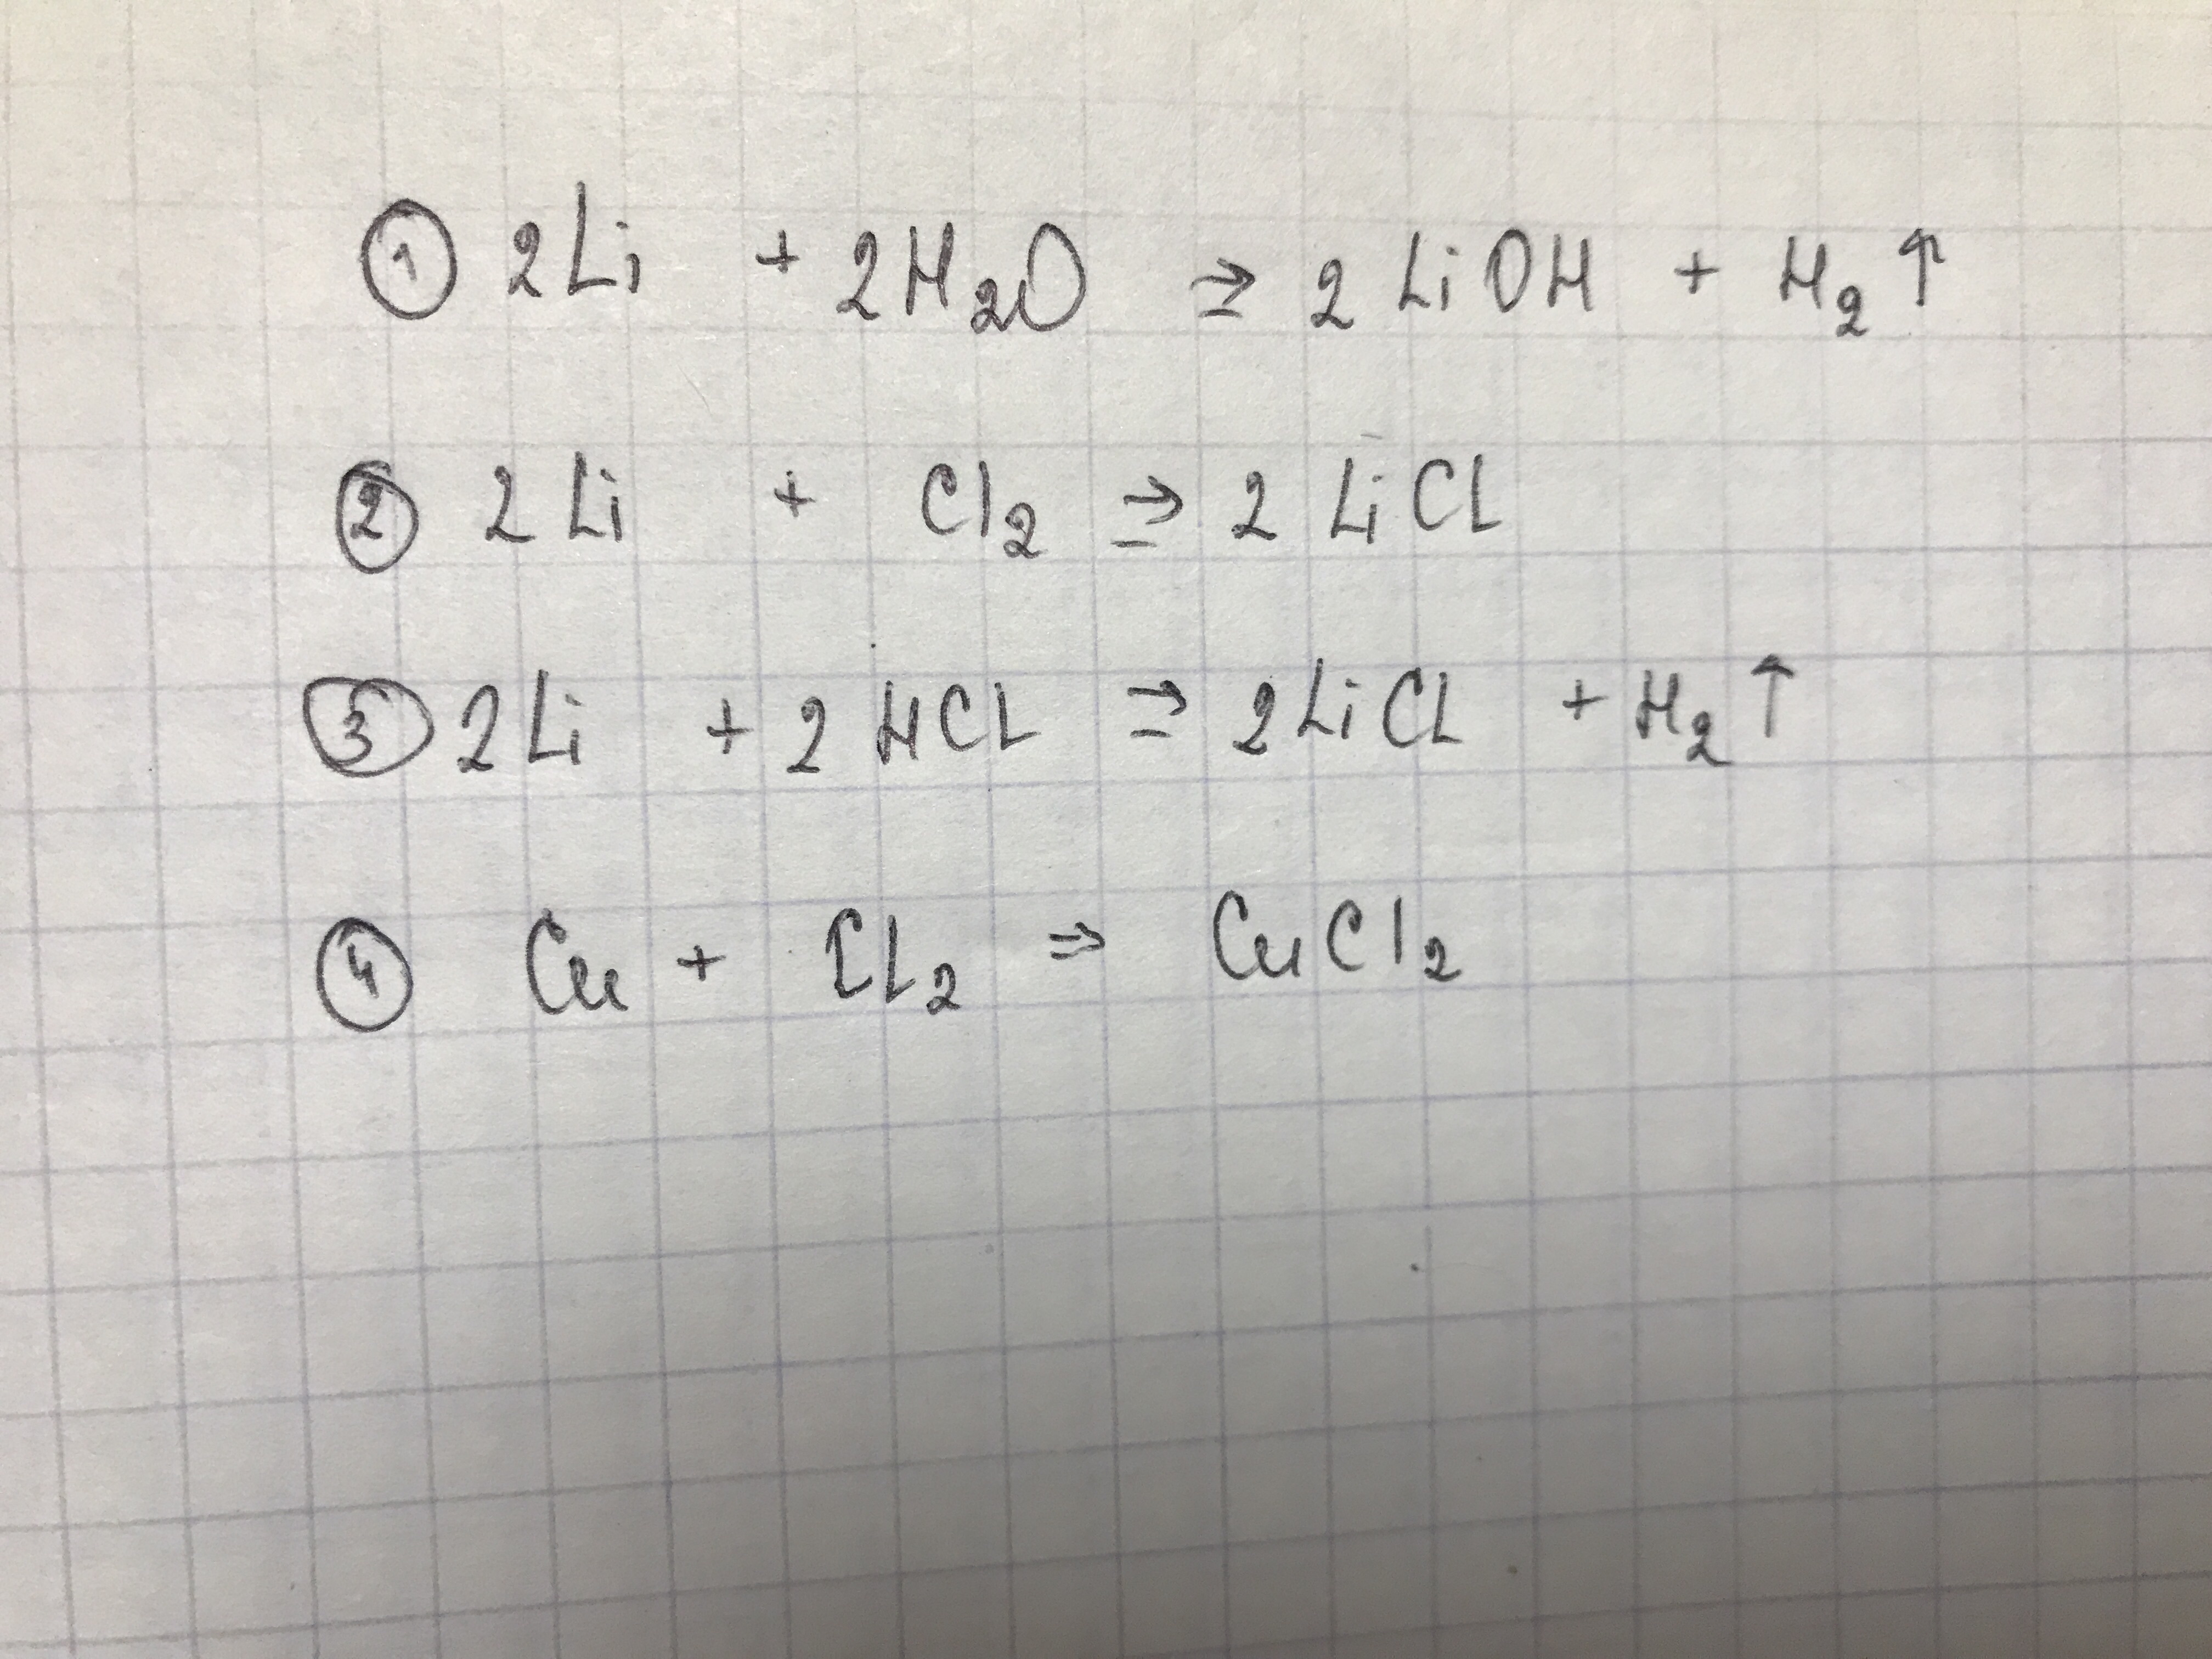 ① 2Li + 2H₂O ⇒ 2LiOH + H₂↑
② 2Li + Cl₂ ⇒ 2LiCl
③ 2Li + 2HCl ⇒ 2LiCl + H₂↑
④ Cu + Cl₂ ⇒ CuCl₂